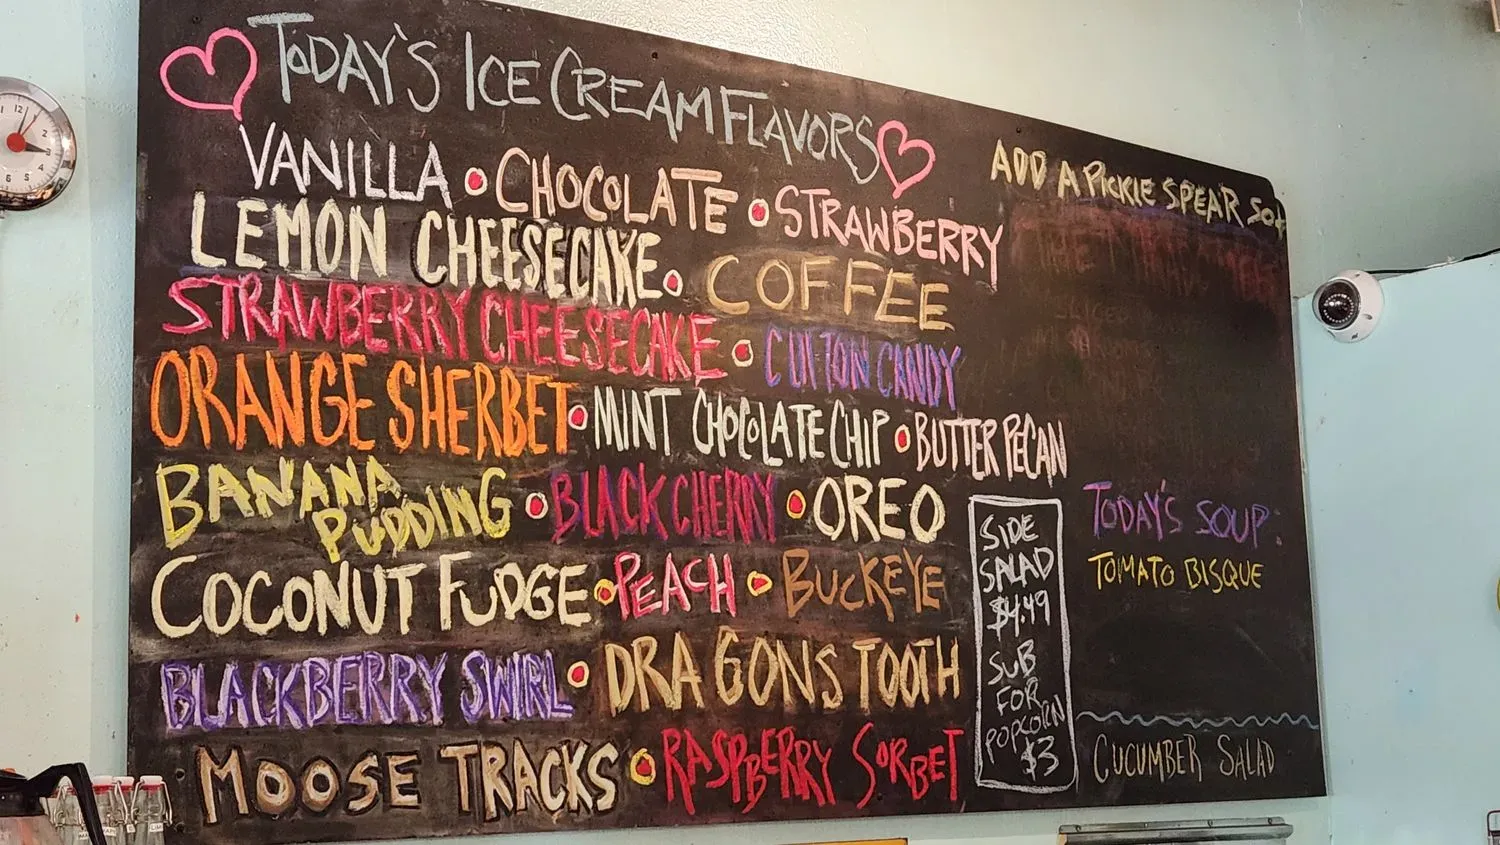 TODAY'S ICE CREAM FLAVORS
VANILLA • CHOCOLATE • STRAWBERRY
LEMON CHEESECAKE • COFFEE
STRAWBERRY CHEESECAKE • COTTON CANDY
ORANGE SHERBET • MINT CHOCOLATE CHIP • BUTTER PECAN
BANANA PUDDING • BLACK CHERRY • OREO
COCONUT FUDGE • PEACH • BUCKEYE
BLACKBERRY SWIRL • DRAGONS TOOTH
MOOSE TRACKS • RASPBERRY SORBET
SIDE
SALAD
$4.49
SUB
FOR
POPCORN
$3
ADD A PICKLE SPEAR 50¢
TODAY'S SOUP:
TOMATO BISQUE
CUCUMBER SALAD